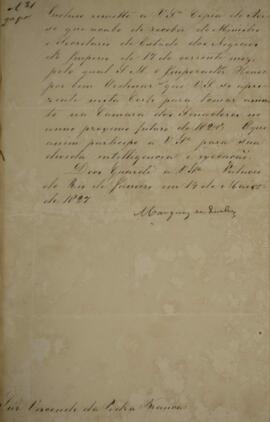 Incluso remetto a V. Sª Copia do
que acabo de receber do Ministro
e Secretario de Estado dos Negocios
do Imperio de 17 do corrente mez,
pelo qual S. M. o Imperador Houve
por bem Ordenar que V. Sª se apre-
zente nesta Corte para tomar assen-
to na Camara dos Senadores no
anno proximo futuro de 1828. O que
assim participo a V. Sª para sua
devida intelligencia e execução.
Deos Guarde a V. Sª Palacio
do Rio de Janeiro em
de 1827
Marquez de Queluz
Snr Visconde da Pedra Branca